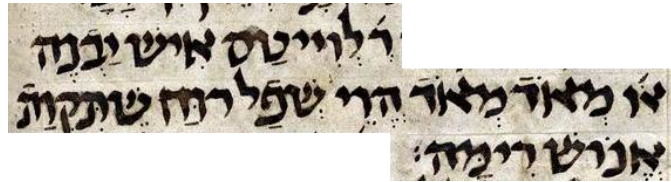 ר׳ לוייטס איש יבנה
או׳ מאוד מאוד הוי שפל רוח שתקות
אנוש רימה: